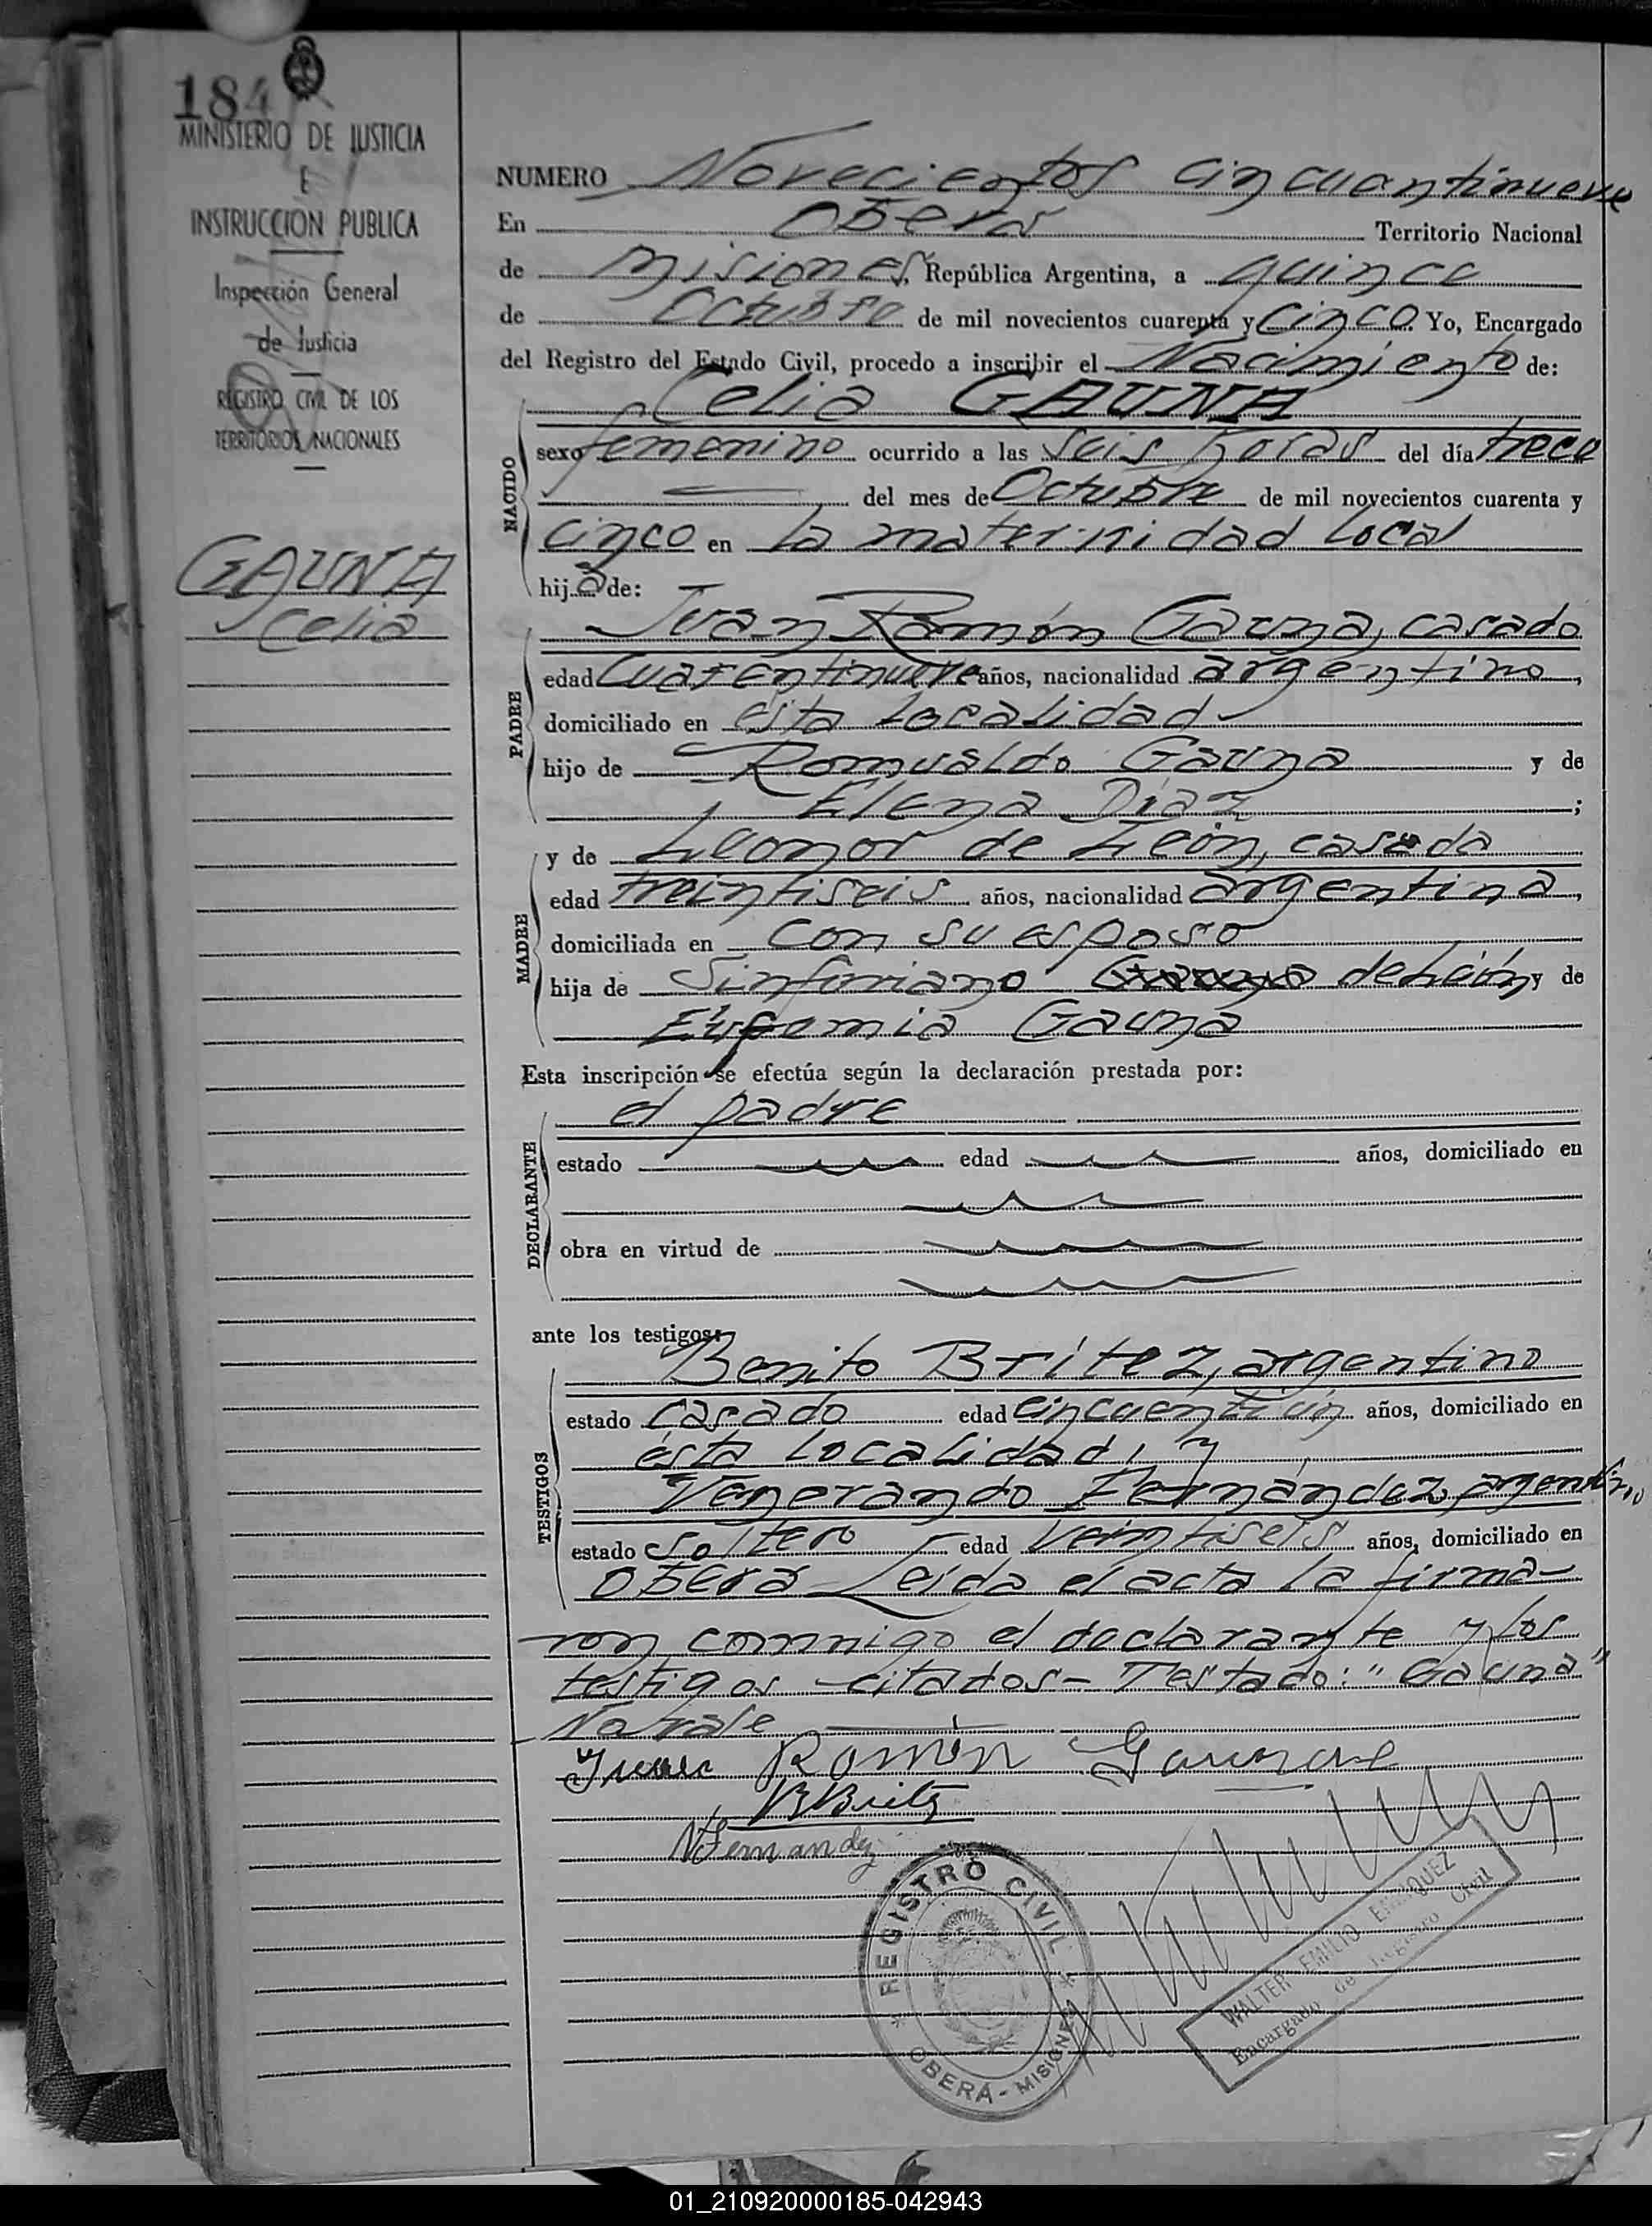 184
MINISTERIO DE JUSTICIA
E
INSTRUCCION PUBLICA
Inspección General
de Justicia
REGISTRO CIVIL DE LOS
TERRITORIOS NACIONALES
GAUNA
Celia
NUMERO Novecientos cincuantinueve
En Oberá Territorio Nacional
de Misiones, República Argentina, a quince
de Octubre de mil novecientos cuarenta y cinco. Yo, Encargado
del Registro del Estado Civil, procedo a inscribir el Nacimiento de:
Celia GAUNA
NACIDO
sexo femenino ocurrido a las seis horas del día trece
del mes de Octubre de mil novecientos cuarenta y
cinco en la maternidad local
hija de:
Juan Ramón Gauna, casado
PADRE
edad cuarentinueve años, nacionalidad argentino,
domiciliado en ésta localidad
hijo de Romualdo Gauna y de
Elena Díaz;
MADRE
y de Leonor de León, casada
edad treintiseis años, nacionalidad argentina,
domiciliada en con su esposo
hija de Sinforiano Gauna de León y de
Eufemia Gauna
Esta inscripción se efectúa según la declaración prestada por:
el padre
DECLARANTE
estado edad años, domiciliado en
obra en virtud de
ante los testigos:
Benito Brítez, argentino
TESTIGOS
estado casado edad cincuentiún años, domiciliado en
ésta localidad, y
Venerando Fernández, argentino
estado soltero edad veintiseis años, domiciliado en
Oberá Leída el acta la firma-
ron conmigo el declarante y los
testigos citados- Testado: "Gauna"
No vale
Juan Ramón Gauna
B Britez
VFernandez
REGISTRO CIVIL
OBERÁ - MISIONES
WALTER EMILIO ENRIQUEZ
Encargado del Registro Civil
01_210920000185-042943